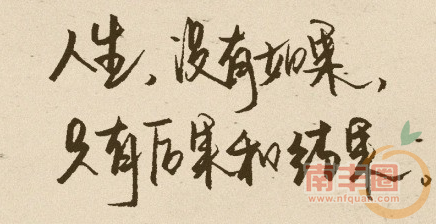 人生,没有如果,
只有后果和结果。
南丰圈
www.nfquan.com